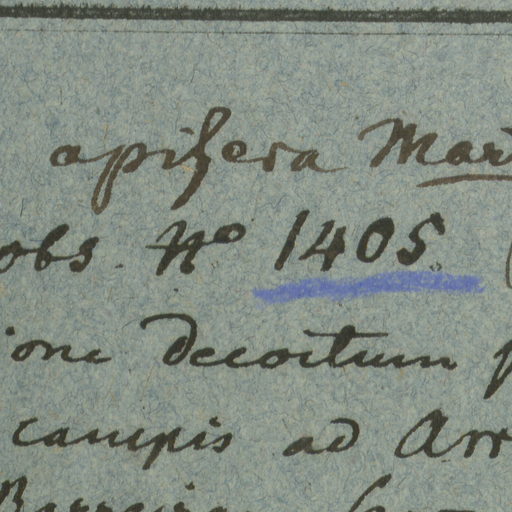 apifera Mart
obs. No 1405
ione decoctum
campis ad Arr